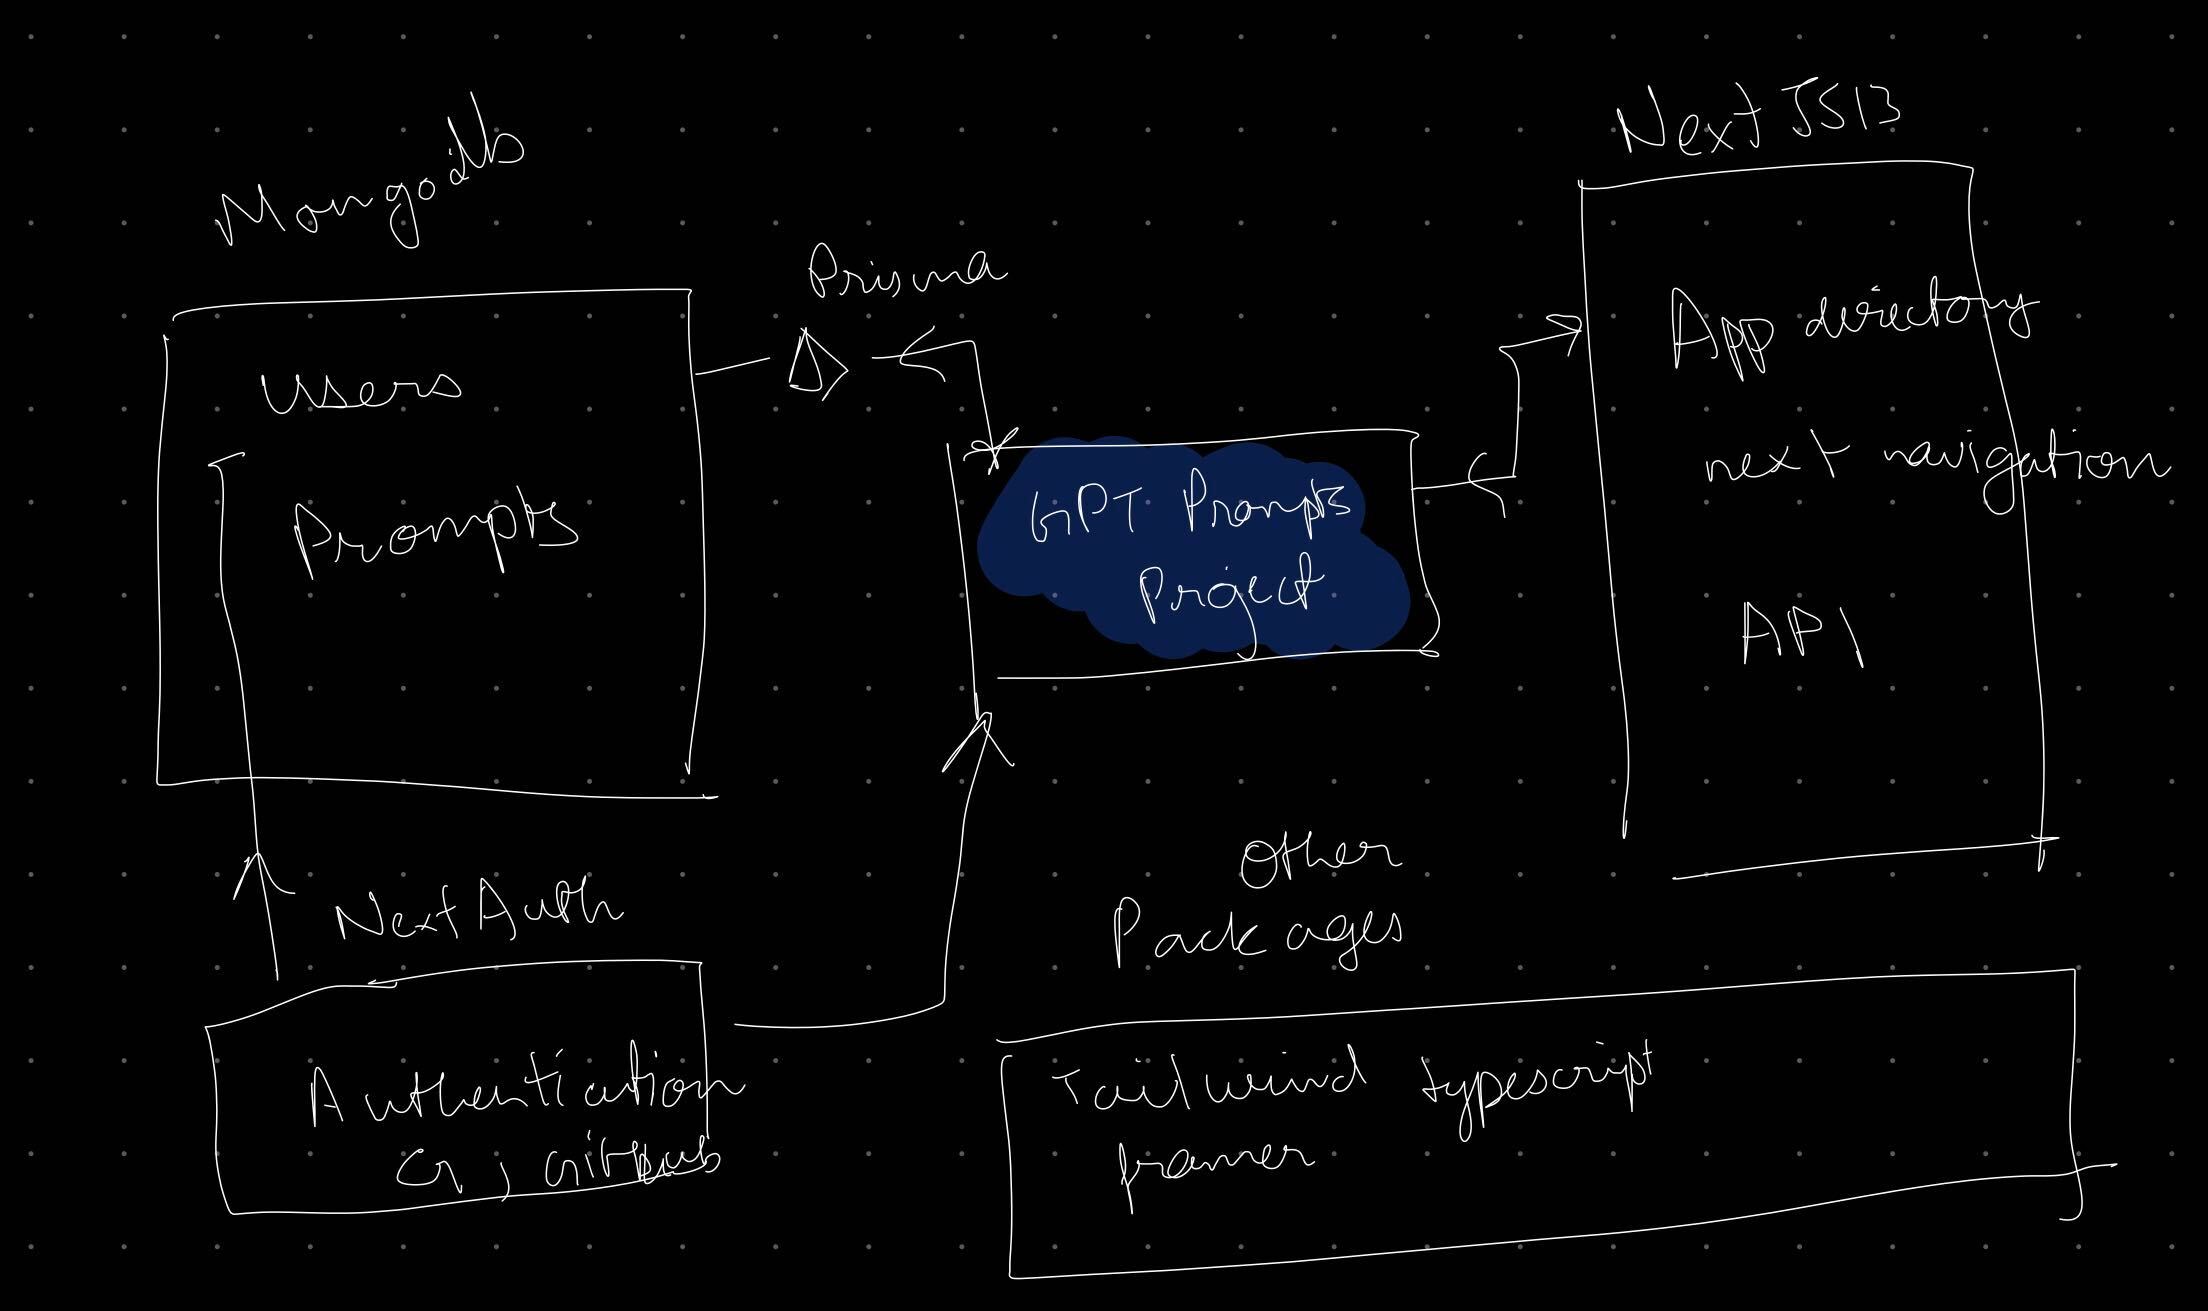 Mongodb
Users
Prompts
Prisma
GPT Prompts
Project
Next JS13
App directory
next navigation
API
NextAuth
Authentication
G, Github
Other
Packages
Tailwind typescript
framer